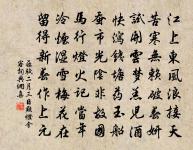 江上東風浪接天
苦寒無賴破春妍
試開雲夢羔兒酒
快瀉錢塘藥玉船
蠶市光陰非故國
馬行燈火記當年
冷煙濕雪梅花在
留得新春作上元
二月三日點燈會